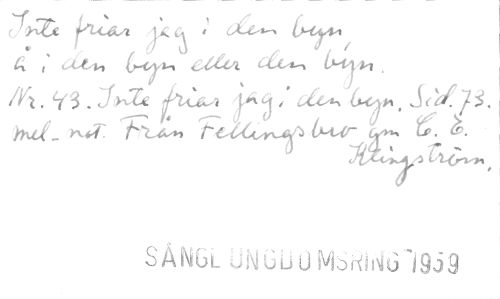 Inte friar jag i den byn
å i den byn eller den byn.
Nr. 43. Inte friar jag i den byn. Sid. 73.
mel. not. Från Fellingsbro gm C. E.
Klingström.
SÅNGL UNGDOMSRING 1959